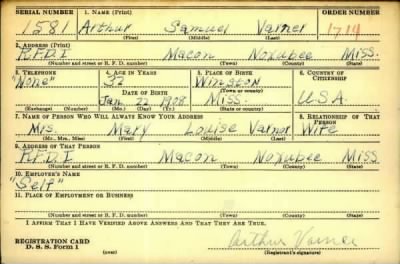 SERIAL NUMBER 1. NAME (Print) ORDER NUMBER
1581 Arthur Samuel Varner 1714
(First) (Middle) (Last)
2. ADDRESS (Print)
R.F.D.I Macon Noxubee Miss.
(Number and street or R. F. D. number) (Town) (County) (State)
3. TELEPHONE 4. AGE IN YEARS 5. PLACE OF BIRTH 6. COUNTRY OF CITIZENSHIP
"None" 32 Winston
DATE OF BIRTH (Town or county)
Jan. 22 1908 Miss. U.S.A.
(Exchange) (Number) (Mo.) (Day) (Yr.) (State or country)
7. NAME OF PERSON WHO WILL ALWAYS KNOW YOUR ADDRESS 8. RELATIONSHIP OF THAT PERSON
Mrs. Mary Louise Varner Wife
(Mr., Mrs., Miss) (First) (Middle) (Last)
9. ADDRESS OF THAT PERSON
R.F.D.I Macon Noxubee Miss
(Number and street or R. F. D. number) (Town) (County) (State)
10. EMPLOYER'S NAME
"Self"
11. PLACE OF EMPLOYMENT OR BUSINESS
(Number and street or R. F. D. number) (Town) (County) (State)
I AFFIRM THAT I HAVE VERIFIED ABOVE ANSWERS AND THAT THEY ARE TRUE.
REGISTRATION CARD
D. S. S. Form 1 (over) Arthur Varner
(Registrant's signature)